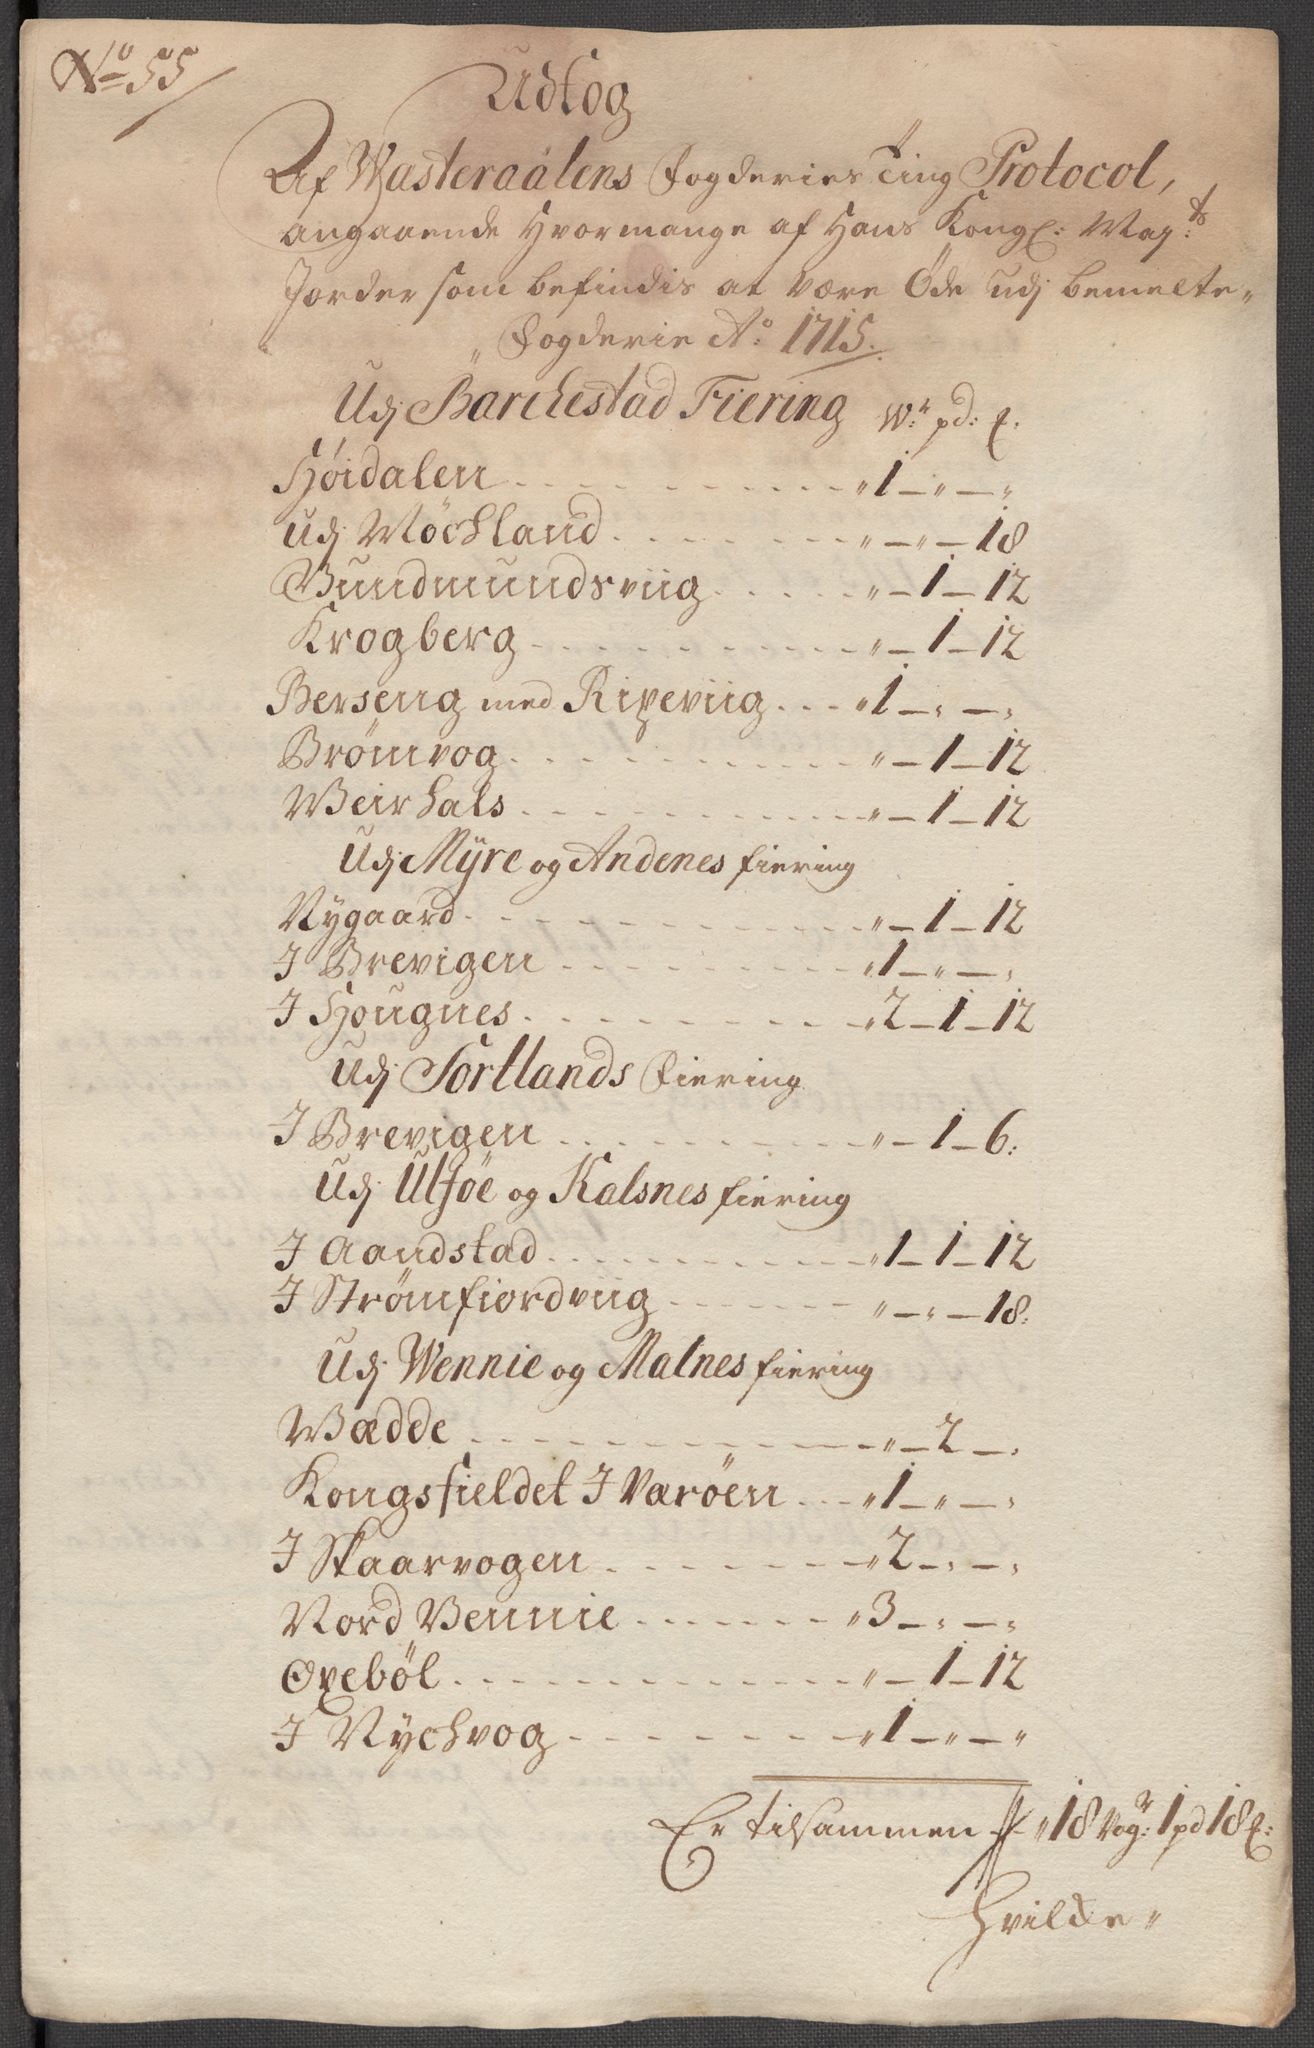 No 55
Udtog
Af Wasteraalens Fogderies Ting Protocol,
angaaende Hvormange af Hans Kongl: Maj:ts
Jorder som befindis at være Öde udj bemelte
Fogderie Ao: 1715.
Udj Barchestad Fiering W: pd: ℔.
Höidalen - - - - „1 — „ — „
Udj Möchland - - - - „ — „ — 18
Gundmundsviig - - - - „ — 1 — 12
Krogberg - - - - „ — 1 — 12
Berseng med Ripeviig - - - - „1 — „ — „
Brömvog - - - - „ — 1 — 12
Weirhals - - - - „ — 1 — 12
Udj Myre og Andenes fiering
Nygaard - - - - „ — 1 — 12
J Brevigen - - - - „1 — „ — „
J Hougnes - - - - „2 — 1 — 12
Udj Sortlands Fiering
J Brevigen - - - - „ — 1 — 6:
Udj Ulföe og Kalsnes fiering
J Aandstad - - - - „1 — 1 — 12
J Strömfiordviig - - - - „ — „ — 18:
Udj Wennie og Malnes fiering
Wædde - - - - „ — 2 — „
Kongsfieldet J Væröen - - - - „1 — „ — „
J Skaarvogen - - - - „2 — „ — „
Nord Vennie - - - - „3 — „ — „
Oxeböl - - - - „ — 1 — 12
J Nychvog - - - - „1 — „ — „
Er tilsammen „18 Vog:r 1 pd 18 ℔:
Hvilche